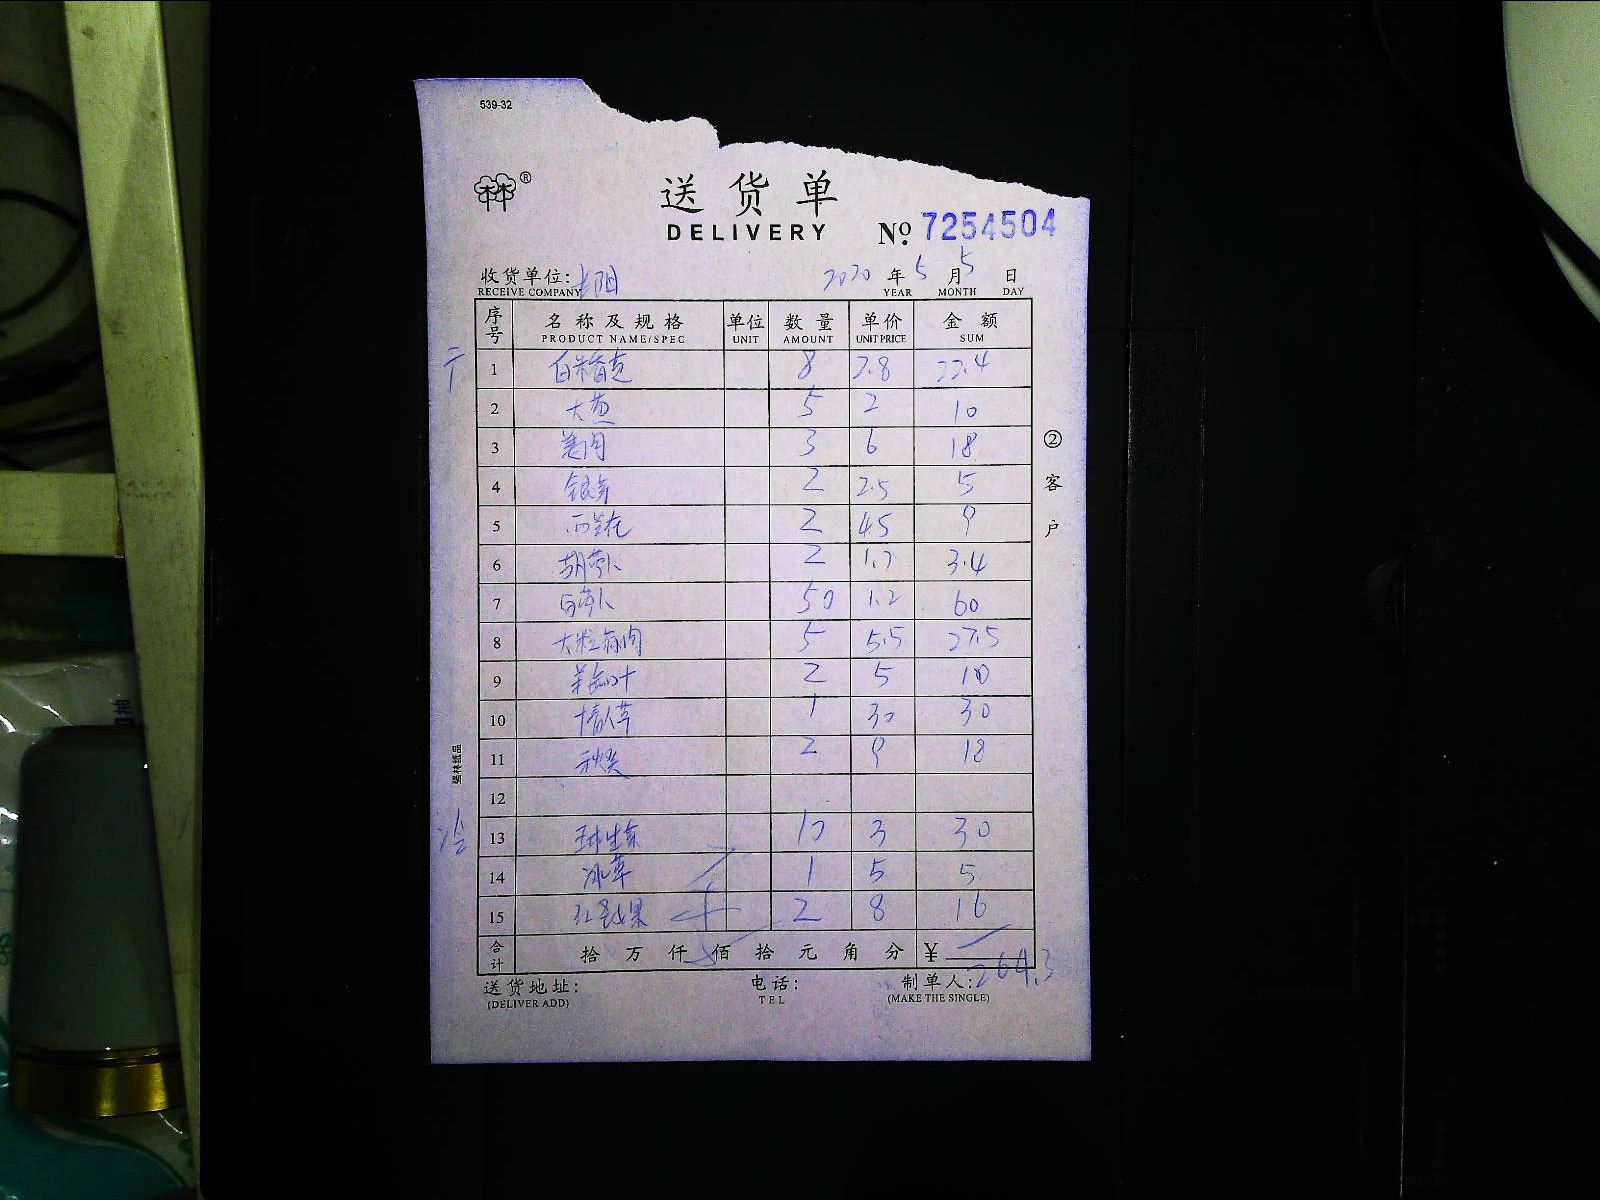 539-32
®
送货单
DELIVERY
No. 7254504
收货单位: 长阳 2020 年 5 月 5 日
RECEIVE COMPANY YEAR MONTH DAY
序号 名称及规格 单位 数量 单价 金额
PRODUCT NAME/SPEC UNIT AMOUNT UNIT PRICE SUM
1 白米苋 8 2.8 22.4
2 大葱 5 2 10
3 姜肉 3 6 18
4 银芽 2 2.5 5
5 西兰花 2 4.5 9
6 胡萝卜 2 1.7 3.4
7 白萝卜 50 1.2 60
8 大粒蒜肉 5 5.5 27.5
9 2 5 10
10 情人草 1 30 30
11 秋葵 2 9 18
12
13 球生菜 10 3 30
14 冰草 1 5 5
15 2 8 16
合计 拾 万 仟 佰 拾 元 角 分 ¥ 264.3
送货地址: 电话: 制单人:
(DELIVER ADD) TEL (MAKE THE SINGLE)
②客户
强林纸品
冷